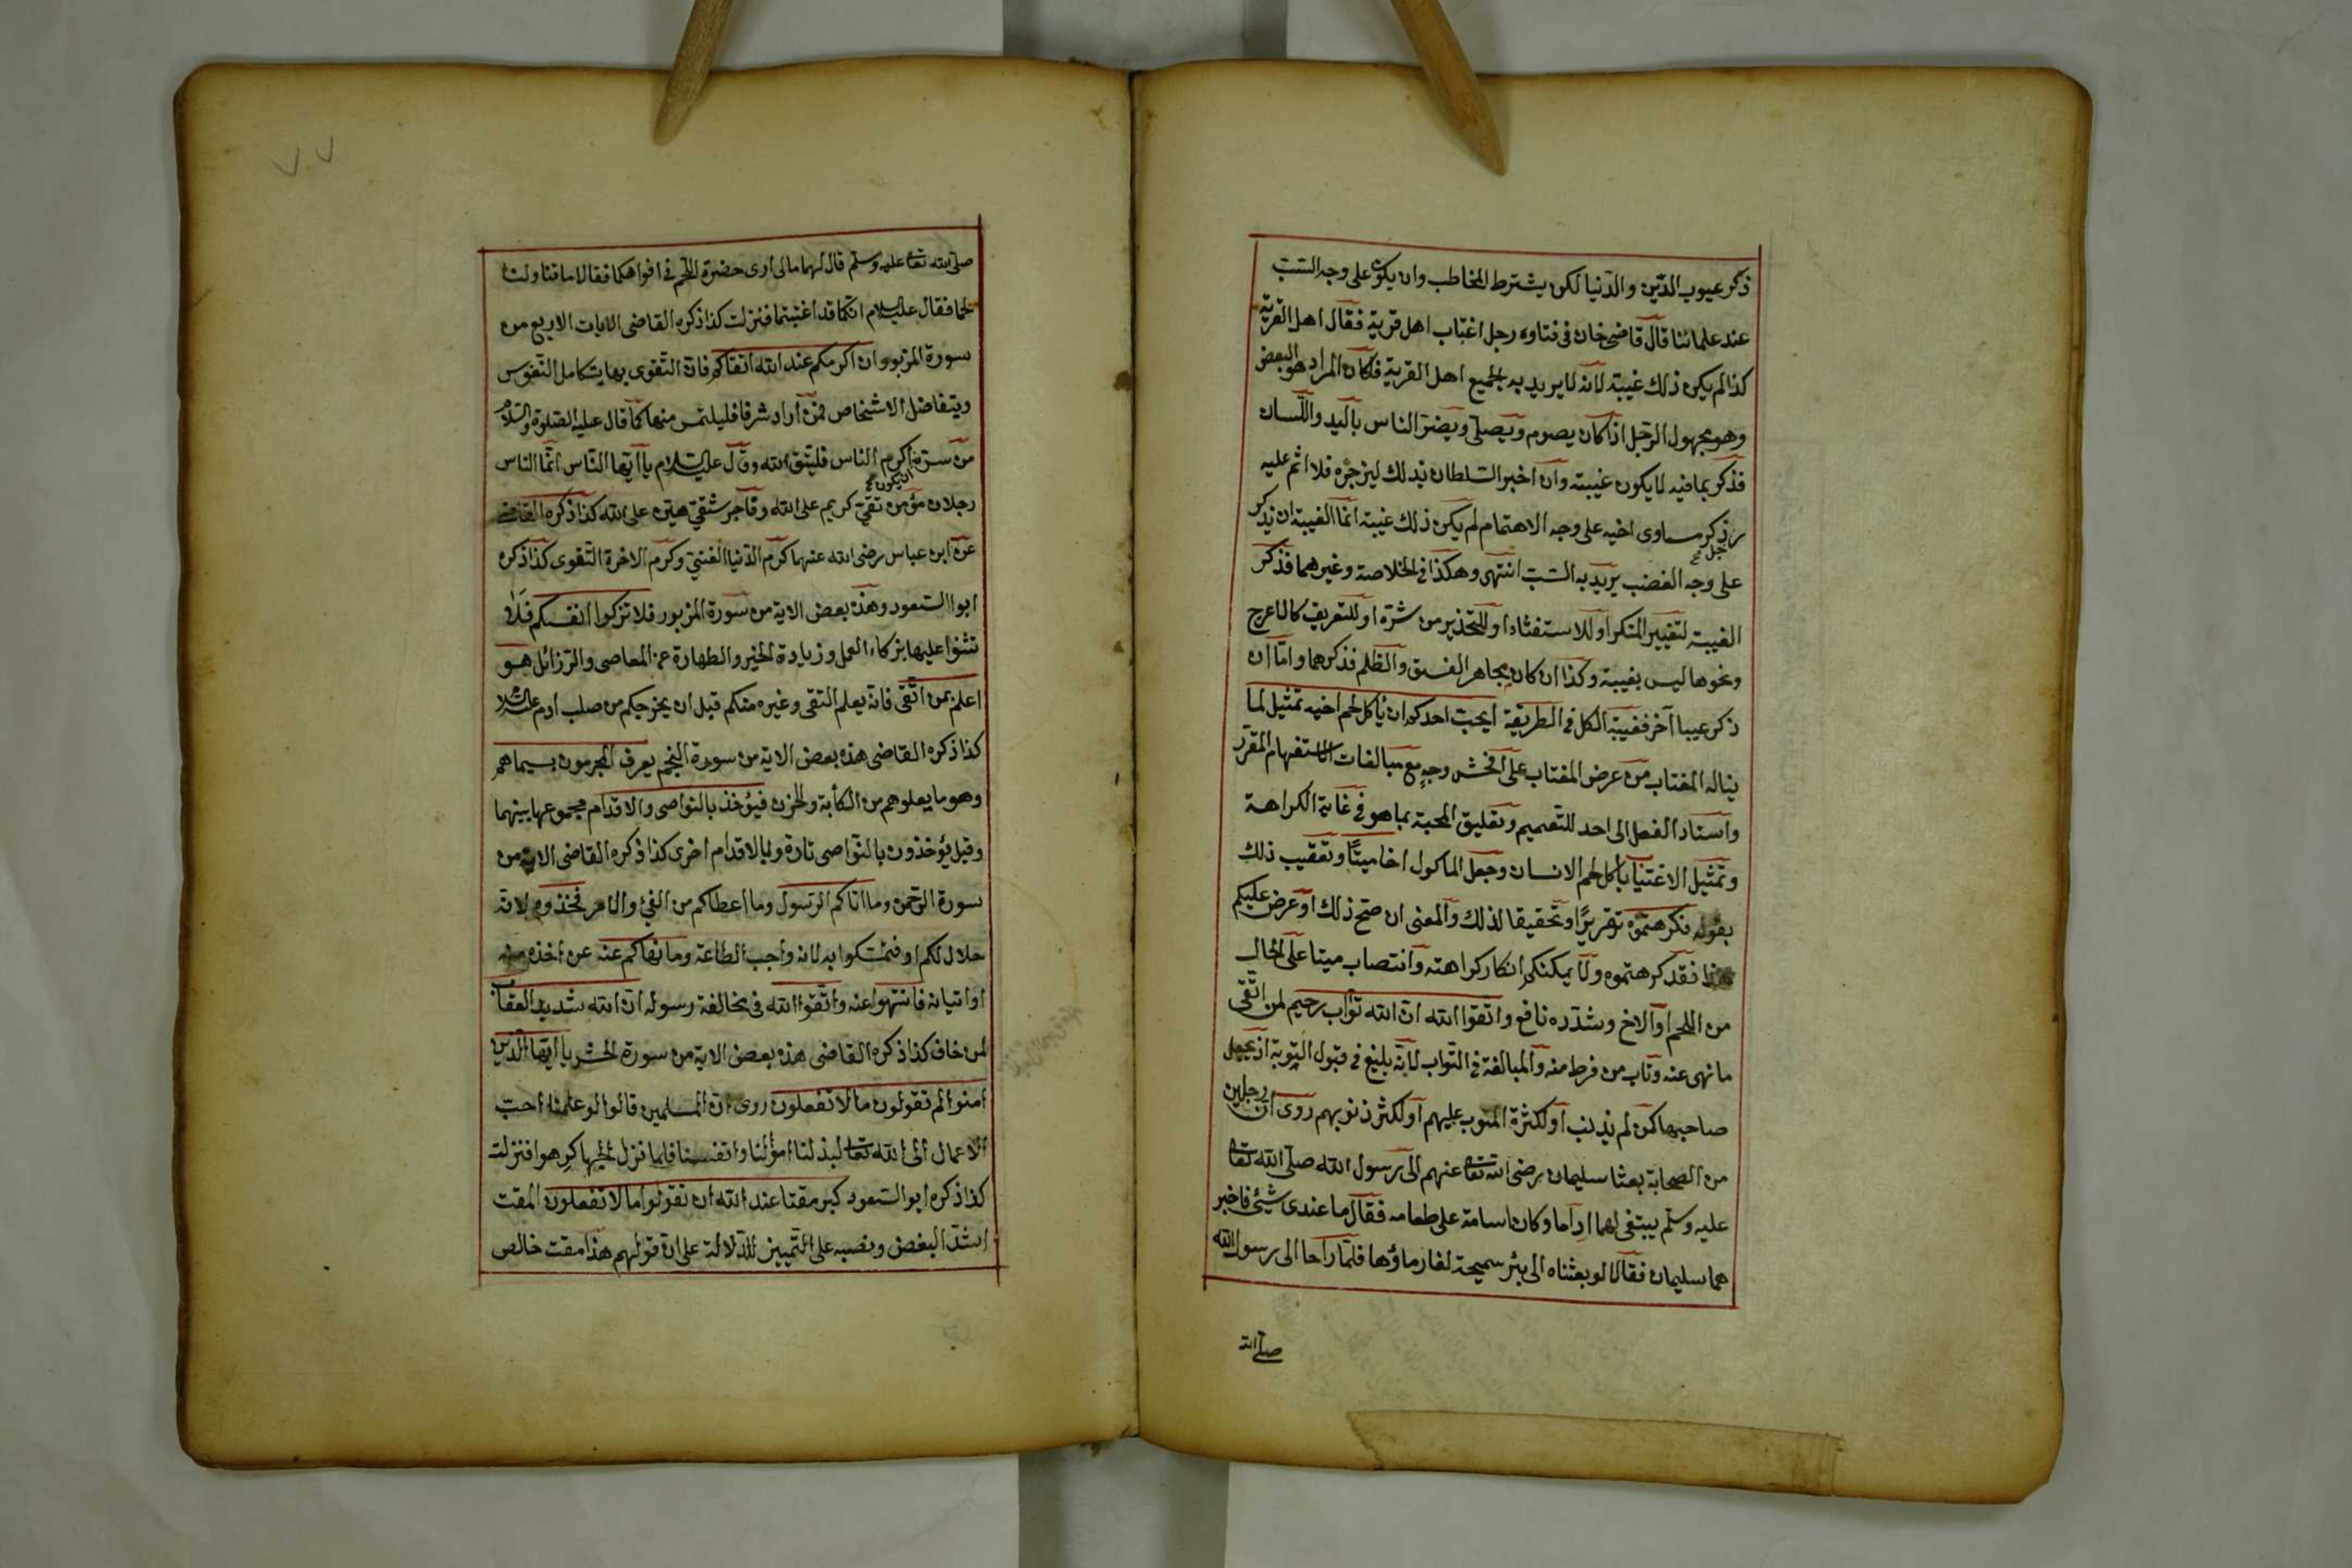 ذكر عيوب الدّين والدّنيا لكن يشترط المخاطب وان يكون على وجه السّبّ
عند علمائنا قال قاضيخان فى فتاوه رجل اغتاب اهل قرية فقال اهل القرية
كذا لم يكن ذلك غيبة لانه لا يريد به الجميع اهل القرية فكان المراد هو البعض
وهو مجهول الرّجل اذا كان يصوم ويصلّى ويضرّ الناس باليد واللّسان
فذكر بما فيه لا يكون غيبته وان اخبر السّلطان بذلك ليزجره فلا اثم عليه
رجل ذكر مساوى اخيه على وجه الاهتمام لم يكن ذلك غيبة انّما الغيبة ان يذكر
على وجه الغضب يريد به السّبّ انتهى وهكذا فى الخلاصة وغيرهما فذكر
الغيبة لتغيير المنكر او للاستفتاء او للتّحذير من شرّه او للتعريف كالاعرج
ونحوها ليس بغيبة وكذا ان كان مجاهر الفسق والظّلم فذكرهما وامّا ان
ذكر عيبا آخر فغيبة الكل فى الطريقة ايحبّ احدكم ان يأكل لحم اخيه تمثيل لما
يناله المغتاب من عرض المغتاب على افحش وجه مع مبالغات الاستفهام المقرّر
واسناد الفعل الى احد للتّعميم وتعليق المحبة بما هو فى غاية الكراهة
وتمثيل الاغتياب باكل لحم الانسان وجعل المأكول اخا ميتًا وتعقيب ذلك
بقوله فكرهتموه تقريرًا وتحقيقا لذلك والمعنى ان صحّ ذلك او عرض عليكم
هذا فقد كرهتموه ولا يمكنكم انكار كراهته وانتصاب ميتا على الحال
من اللحم او الاخ وشدّده نافع واتقوا الله ان الله توّاب رحيم لمن اتّقى
ما نهى عنه وتاب من فرط منه والمبالغة فى التواب لانّه بليغ فى قبول التّوبة اذ يجعل
صاحبها كمن لم يذنب او لكثرة المتوب عليهم او لكثرة ذنوبهم روى ان رجلين
من الصحابة بعثا سليمان رضى الله تعا عنهم الى رسول الله صلّى الله تعا
عليه وسلّم يبتغى لهما اداما وكان اسامة على طعامه فقال ما عندى شيئ فاخبر
هما سليمان فقالا لو بعثناه الى بئر سميحة لغار ماؤها فلمّا راحا الى رسول الله
صلّى الله
٧٧
صلّى الله تعا عليه وسلّم قال لهما مالى ارى حضرة اللّحم فى افواهكما فقالا ما تناولنا
لحما فقال عليه السلام انّكما قد اغتبتما فنزلت كذا ذكره القاضى الايات الاربع من
سورة المزبور وان اكرمكم عند الله اتقاكم فان التّقوى بها يتكامل النّفوس
ويتفاضل الاشخاص فمن اراد شرفا فليلتمس منها كما قال عليه الصّلوة والسّلام
من سرّه ان يكون اكرم الناس فليتق الله وقال عليه السّلام يا ايّها النّاس انّما الناس
رجلان مؤمن تقىّ كريم على الله وفاجر شقىّ هيّن على الله كذا ذكره القاضى
عن ابن عباس رضى الله عنهما كرم الدّنيا الغنى وكرم الاخرة التّقوى كذا ذكره
ابو السّعود وهذه بعض الاية من سورة المزبور فلا تزكوا انفسكم فلا
تثنوا عليها بزكاء العمل وزيادة الخير والطهارة عن المعاصى والرّزائل هو
اعلم بمن اتّقى فانه يعلم التقى وغيره منكم قبل ان يخرجكم من صلب ادم عليه السّلا
كذا ذكره القاضى هذه بعض الاية من سورة النّجم يعرف المجرمون بسيماهم
وهو ما يعلوهم من الكأبة والحزن فيؤخذ بالنواصى والاقدام مجموعها بينهما
وقيل يؤخذون بالنّواصى تارة وبالاقدام اخرى كذا ذكره القاضى الاية من
سورة الرّحمن وما اتاكم الرّسول وما اعطاكم من الفئ والامر فخذوه لانه
حلال لكم او فتمسّكوا به لانه واجب الطاعة وما نهاكم عنه عن اخذه منه
او اتيانه فانتهوا عنه واتّقوا الله فى مخالفة رسوله ان الله شديد العقاب
لمن خاف كذا ذكره القاضى هذه بعض الاية من سورة الحشر يا ايّها الّذين
امنوا لم تقولون ما لا تفعلون روى ان المسلمين قالوا لو علمنا احبّ
الاعمال الى الله تعا لبذلنا اموالنا وانفسنا فلما نزل الجهاد كرهوا فنزلت
كذا ذكره ابو السّعود كبر مقتا عند الله ان تقولوا ما لا تفعلون المقت
اشدّ البغض ونصبه على التّمييز للدّلالة على ان قولهم هذا مقت خالص